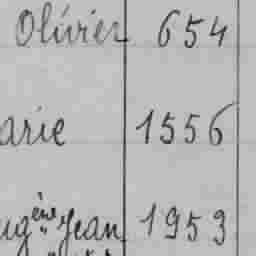 Olivier 654
arie 1556
ugène " Jean 1953